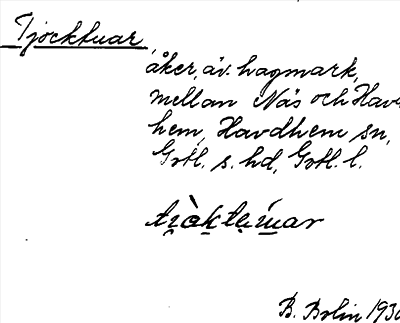 Tjocktuar,
åker, äv. hagmark,
mellan Näs och Havd
hem, Havdhem sn,
Gotl. s. hd, Gotl. l.
B. Bolin 193